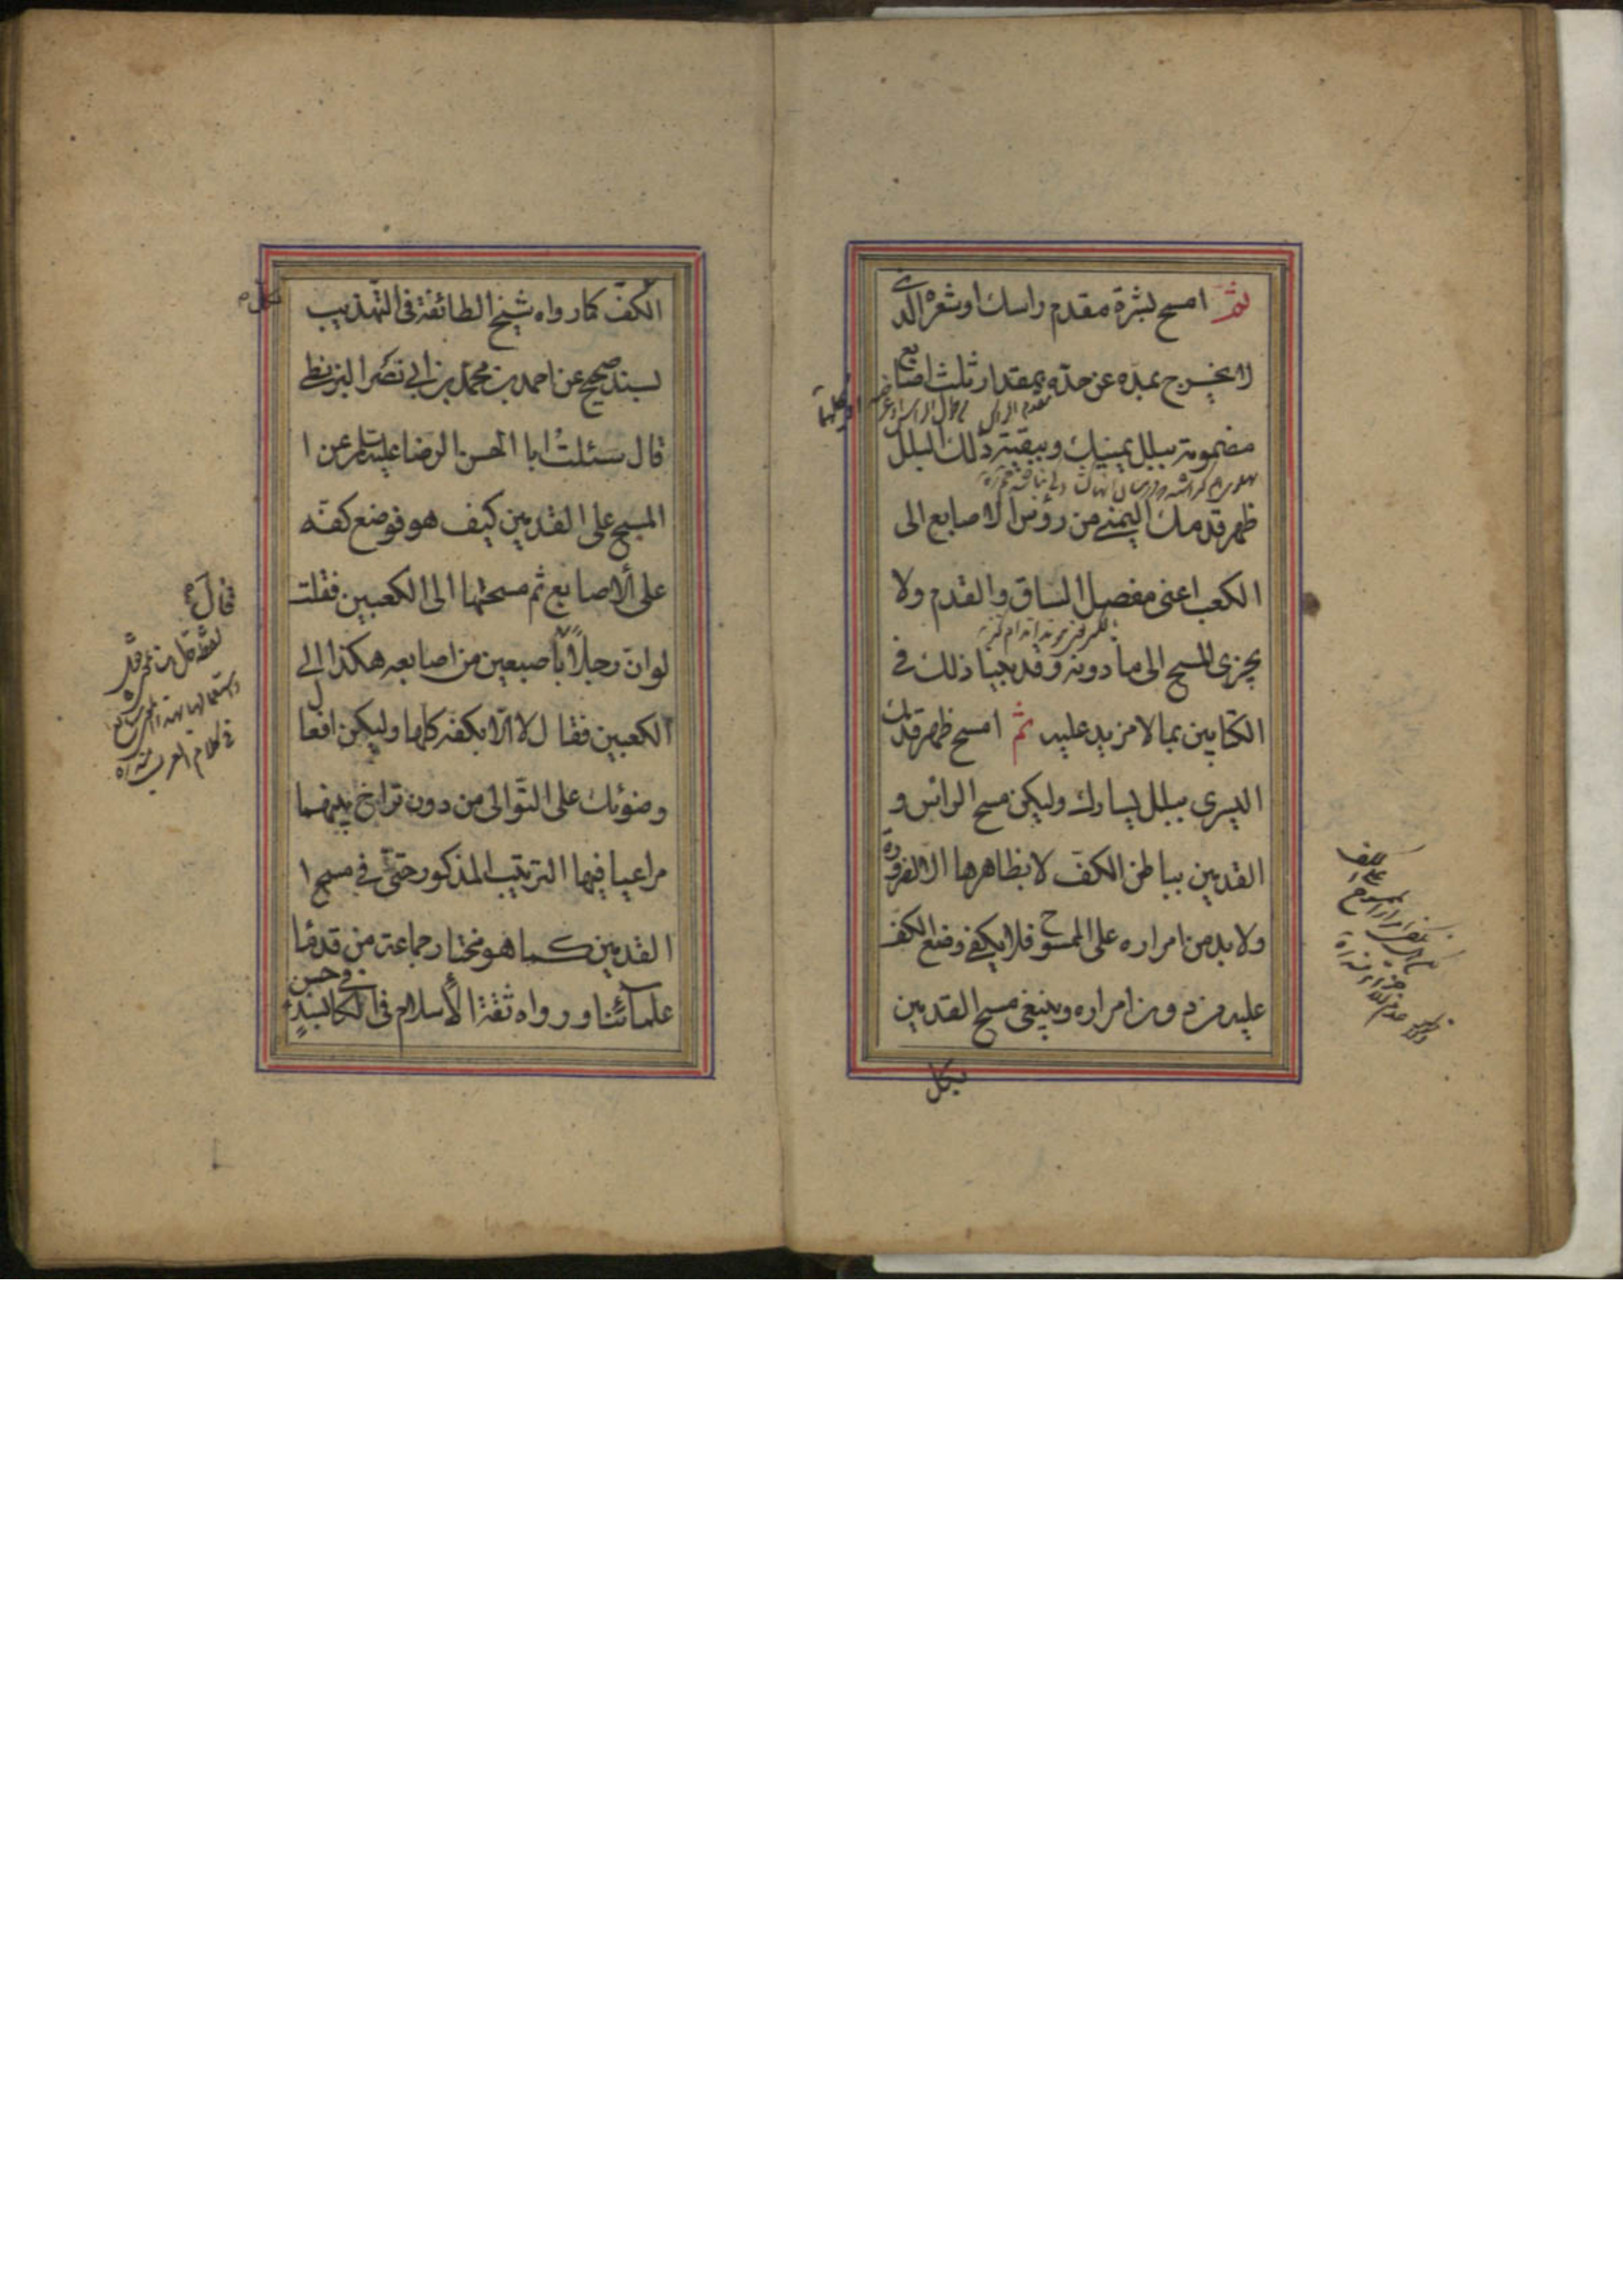 ثم امسح بشرة مقدم راسك او شعره الذي
لا يخرج بمده عن حده بمقدار ثلث اصابع
مضمومة ببلل يمينك وببقية ذلك البلل
ظهر قدمك اليمنى من رؤس الاصابع الى
الكعب اعنى مفصل الساق والقدم ولا
يجزى المسح الى ما دونه وقد بينا ذلك في
الكتابين بما لا مزيد عليه ثم امسح ظهر قدمك
اليسرى ببلل يسارك وليكن مسح الرأس و
القدمين بباطن الكف لا بظاهرها الا لضرورة
ولا بد من امراره على الممسوح فلا يكفى وضع الكف
عليه من دون امراره وينبغى مسح القدمين
بكل
بكل
الكف كما رواه شيخ الطائفة فى التهذيب
بسند صحيح عن احمد بن محمد بن ابى نصر البزنطي
قال سئلت ابا الحسن الرضا عليه السلام عن ا
المسح على القدمين كيف هو فوضع كفه
على الاصابع ثم مسحها الى الكعبين فقلت
لو ان رجلاً باصبعين من اصابعه هكذا الى
الكعبين فقال لا الا بكفه كلها وليكن افعال
وضوئك على التوالى من دون تراخ بينهما
مراعيا فيها الترتيب المذكور حتى في مسح ا
القدمين كما هو مختار جماعة من قدما
علمائنا ورواه ثقة الأسلام فى الكافى بسند حسن
قال
فى كلام العرب منه ره